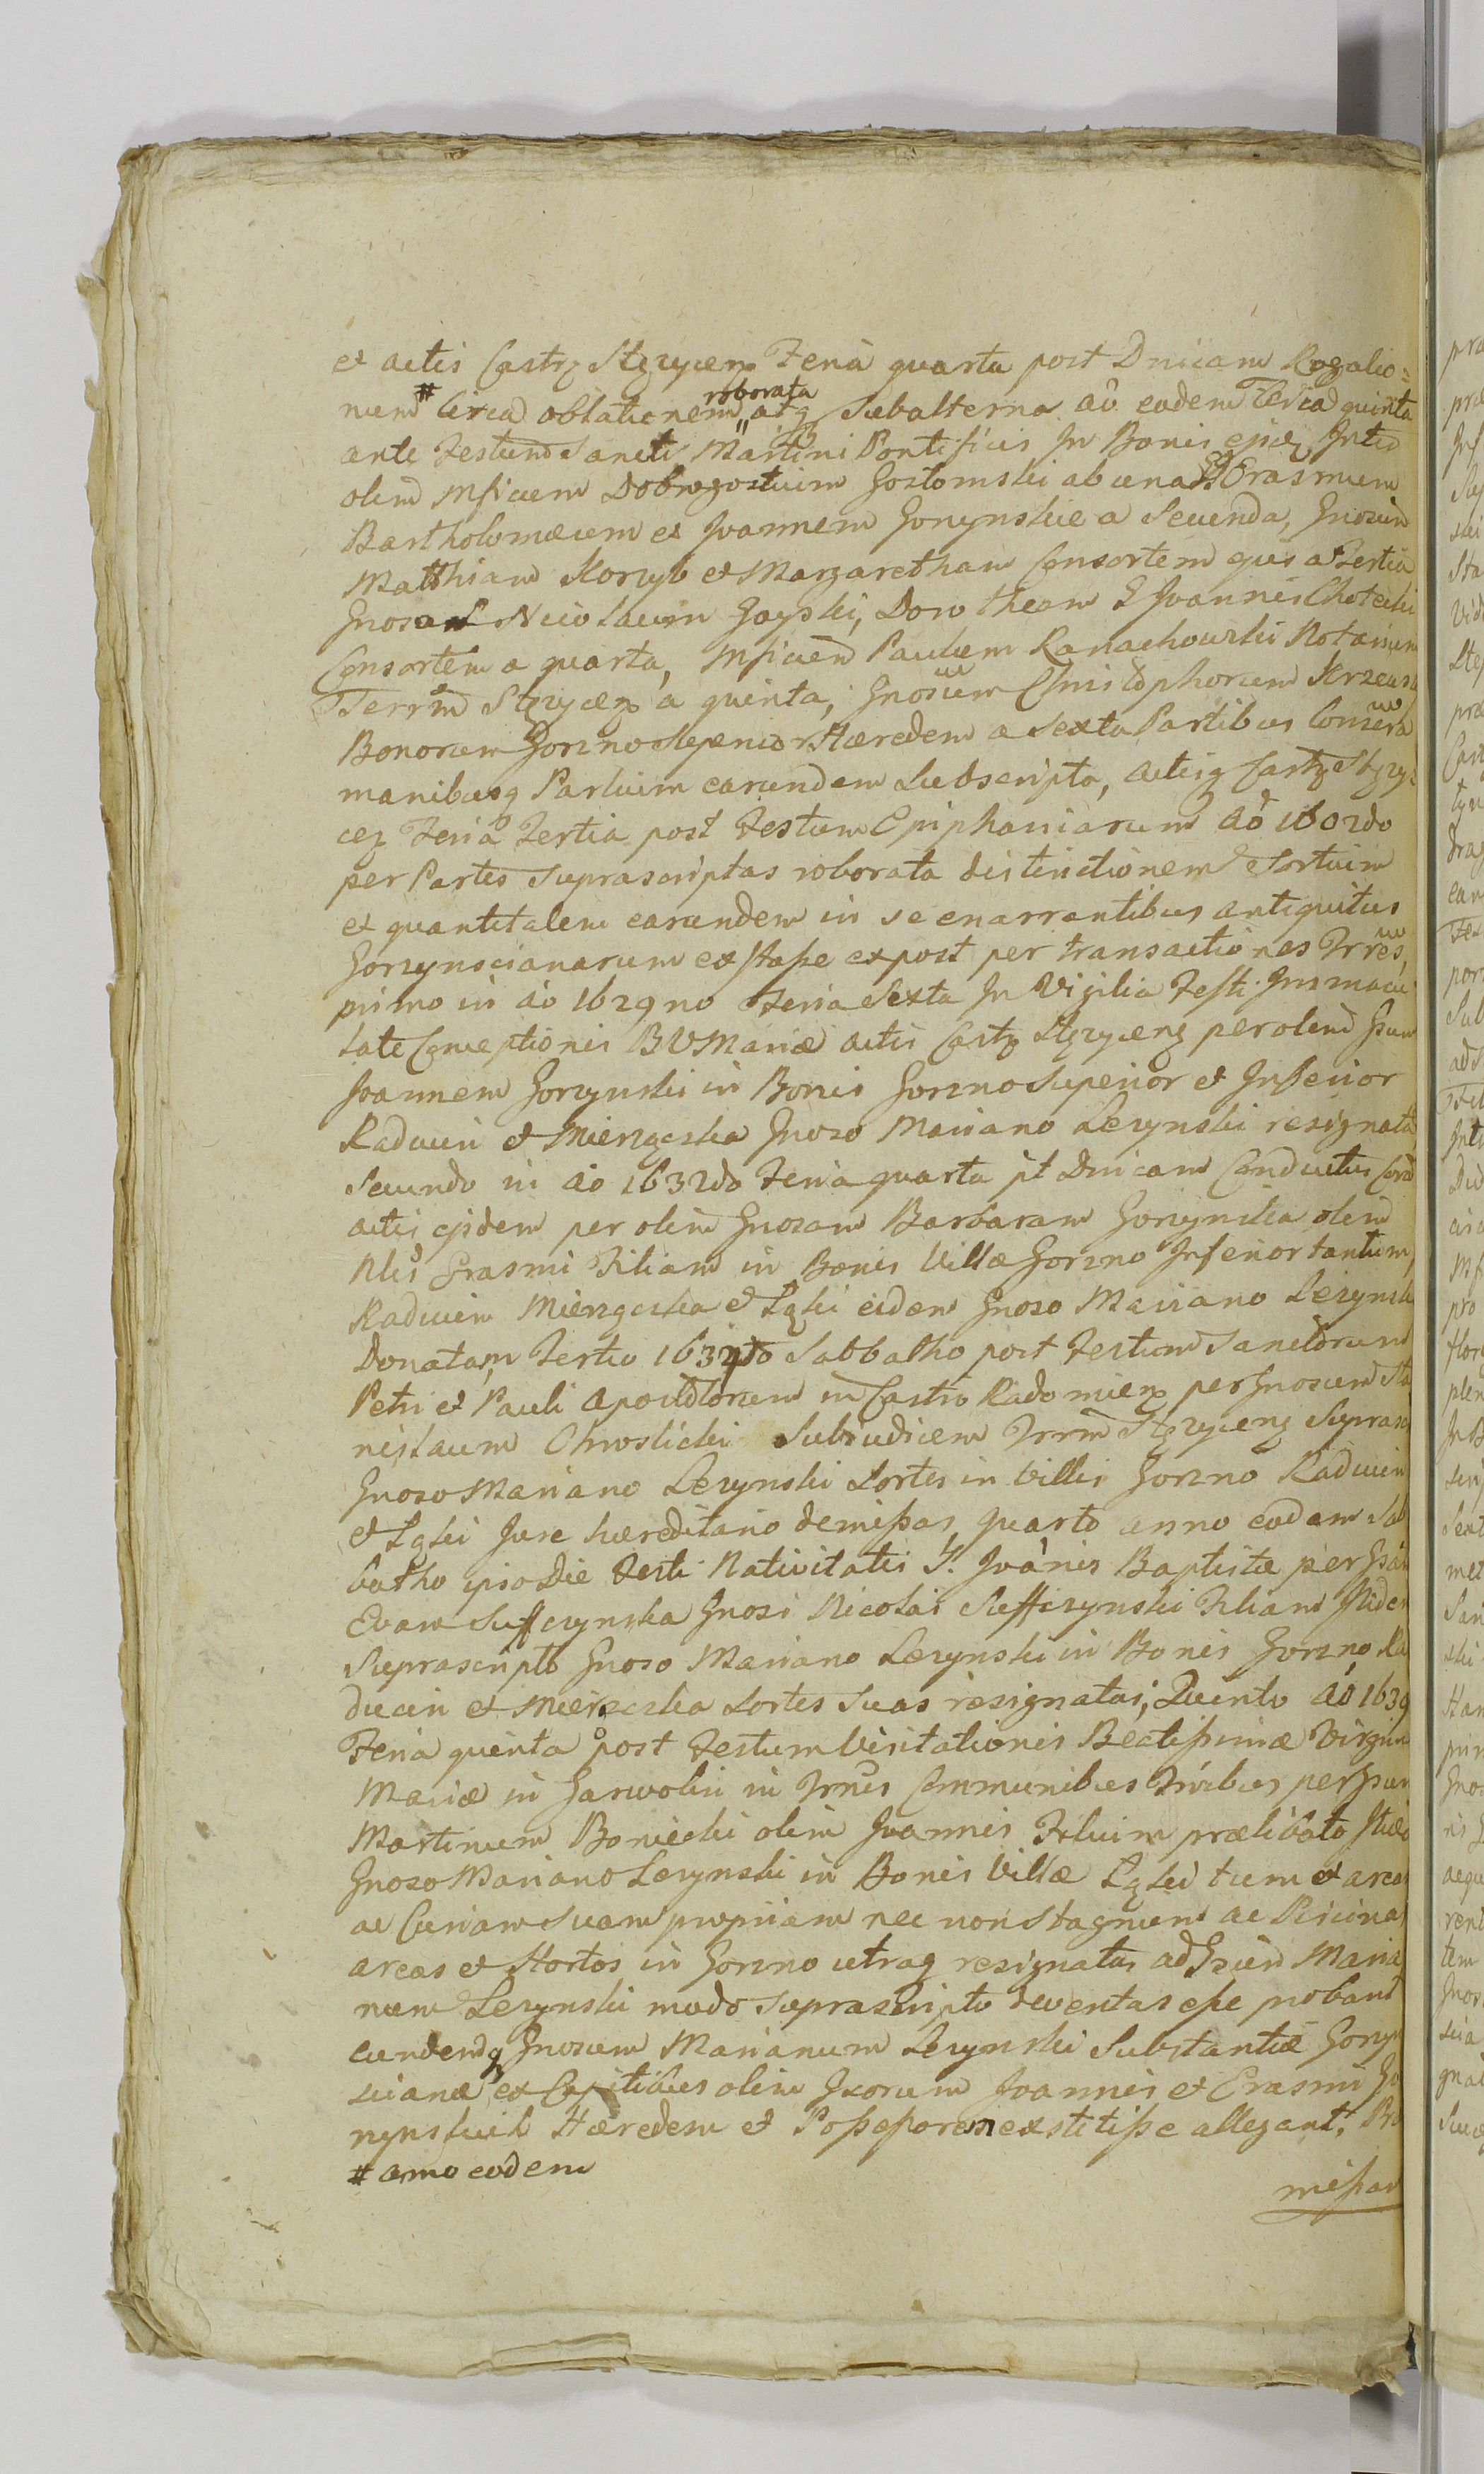 et actis Castr Stęzycen Feria quarta post Dnicam Rogatio=
num # Circa oblationem „roborata atq Subalterna aō eodem Feria quinta
ante Festum Sancti Martini Pontificis In Bonis ejsdem Inter
olim Mficum Dobrogostium Gostomski ab una Erasmum
Bartholomæum et Joannem Gorzynskie a Secunda, Gnosum
Matthiam Koryb et Margaretham Consortem ejus a Tertia
Gnosum Nicolaum Gayski, Dorotheam G Joannis Chotecki
Consortem a quarta, Mficum Paulum Ranachowski Notarium
Terrm Stęzycen a quinta, Gnosum Christophorum
Bonorum Gorzno Superior Hæredem a Sexta Partibus
manibusq Partium earundem Subscripta, actisq Castr Stęzy
cen Feria Tertia post Festum Epiphaniarum aō 1602do
per Partes Suprascriptas roborata distinctionem Sortium
et quantitatem earundem in se enarrantibus antiquitus
Gorzynscianarum extasse expost per transactiones
primo in aō 1629no Feria Sexta In Vigilia Festi Immacu
latæ Conceptionis BVMariæ actis Castr Stęzycens per olim Gsum
Joannem Gorzynski in Bonis Gorzno Superior et Inferior
Raduin et Mierzączka Gnoso Mariano Lezynski resignata
Secundo in aō 1632do Feria quarta pt Dnicam Conductus
actis ejsdem per olim Gnosam Barbaram Gorzynska olim
Nlis Erasmi Filiam in Bonis Villæ Gorzno Inferior tantum,
Raduin Mierzączka et Łąki eidem Gnoso Mariano Lezynski
Donatam, Tertio 1634to Sabbatho post Festum Sanctorum
Petri et Pauli Apostolorum in Castro Radomien per Gnosum Sta
nislaum Chroslicki Subiudicem Trrm Stęzycens Suprascr
Gnoso Mariano Lezynski Sortes in Villis Gorzno Raduin
et Łąki Jure hæreditario demissas, quarto anno eodem Sab
batho ipso Die Festi Nativitatis S. Joānis Baptistæ per Gsam
Evam Suffczynska Gnosi Nicolai Suffczynski Filiam
Suprascripto Gnoso Mariano Lezynski in Bonis Gorzno, Ra
ducin et Mierzączka Sortes Suas resignatas, Quinto aō 1639
Feria quinta post Festum Visitationis Beatissimæ Virginis
Mariæ in Garwolin in Trris Communibus per Gsum
Martinum Boniecki olim Joannis Filium prælibato
Gnoso Mariano Lezynski in Bonis Villæ Łąki tum et areas
ac Curiam Suam propriam nec non Stagnum ac Piscinas
areas et Hortos in Gorzno utraq resignatas ad Gsum Maria
num Lezynski modo Suprascripto deventas esse probant
eundemq Gnosum Marianum Lezynski Substantiæ Gorzyn
scianæ ex Capitibus olim Gsorum Joannis et Erasmi Go
rzynskich Hæredem et Possessorem extitisse allegant, Pro
# anno eodem
missar